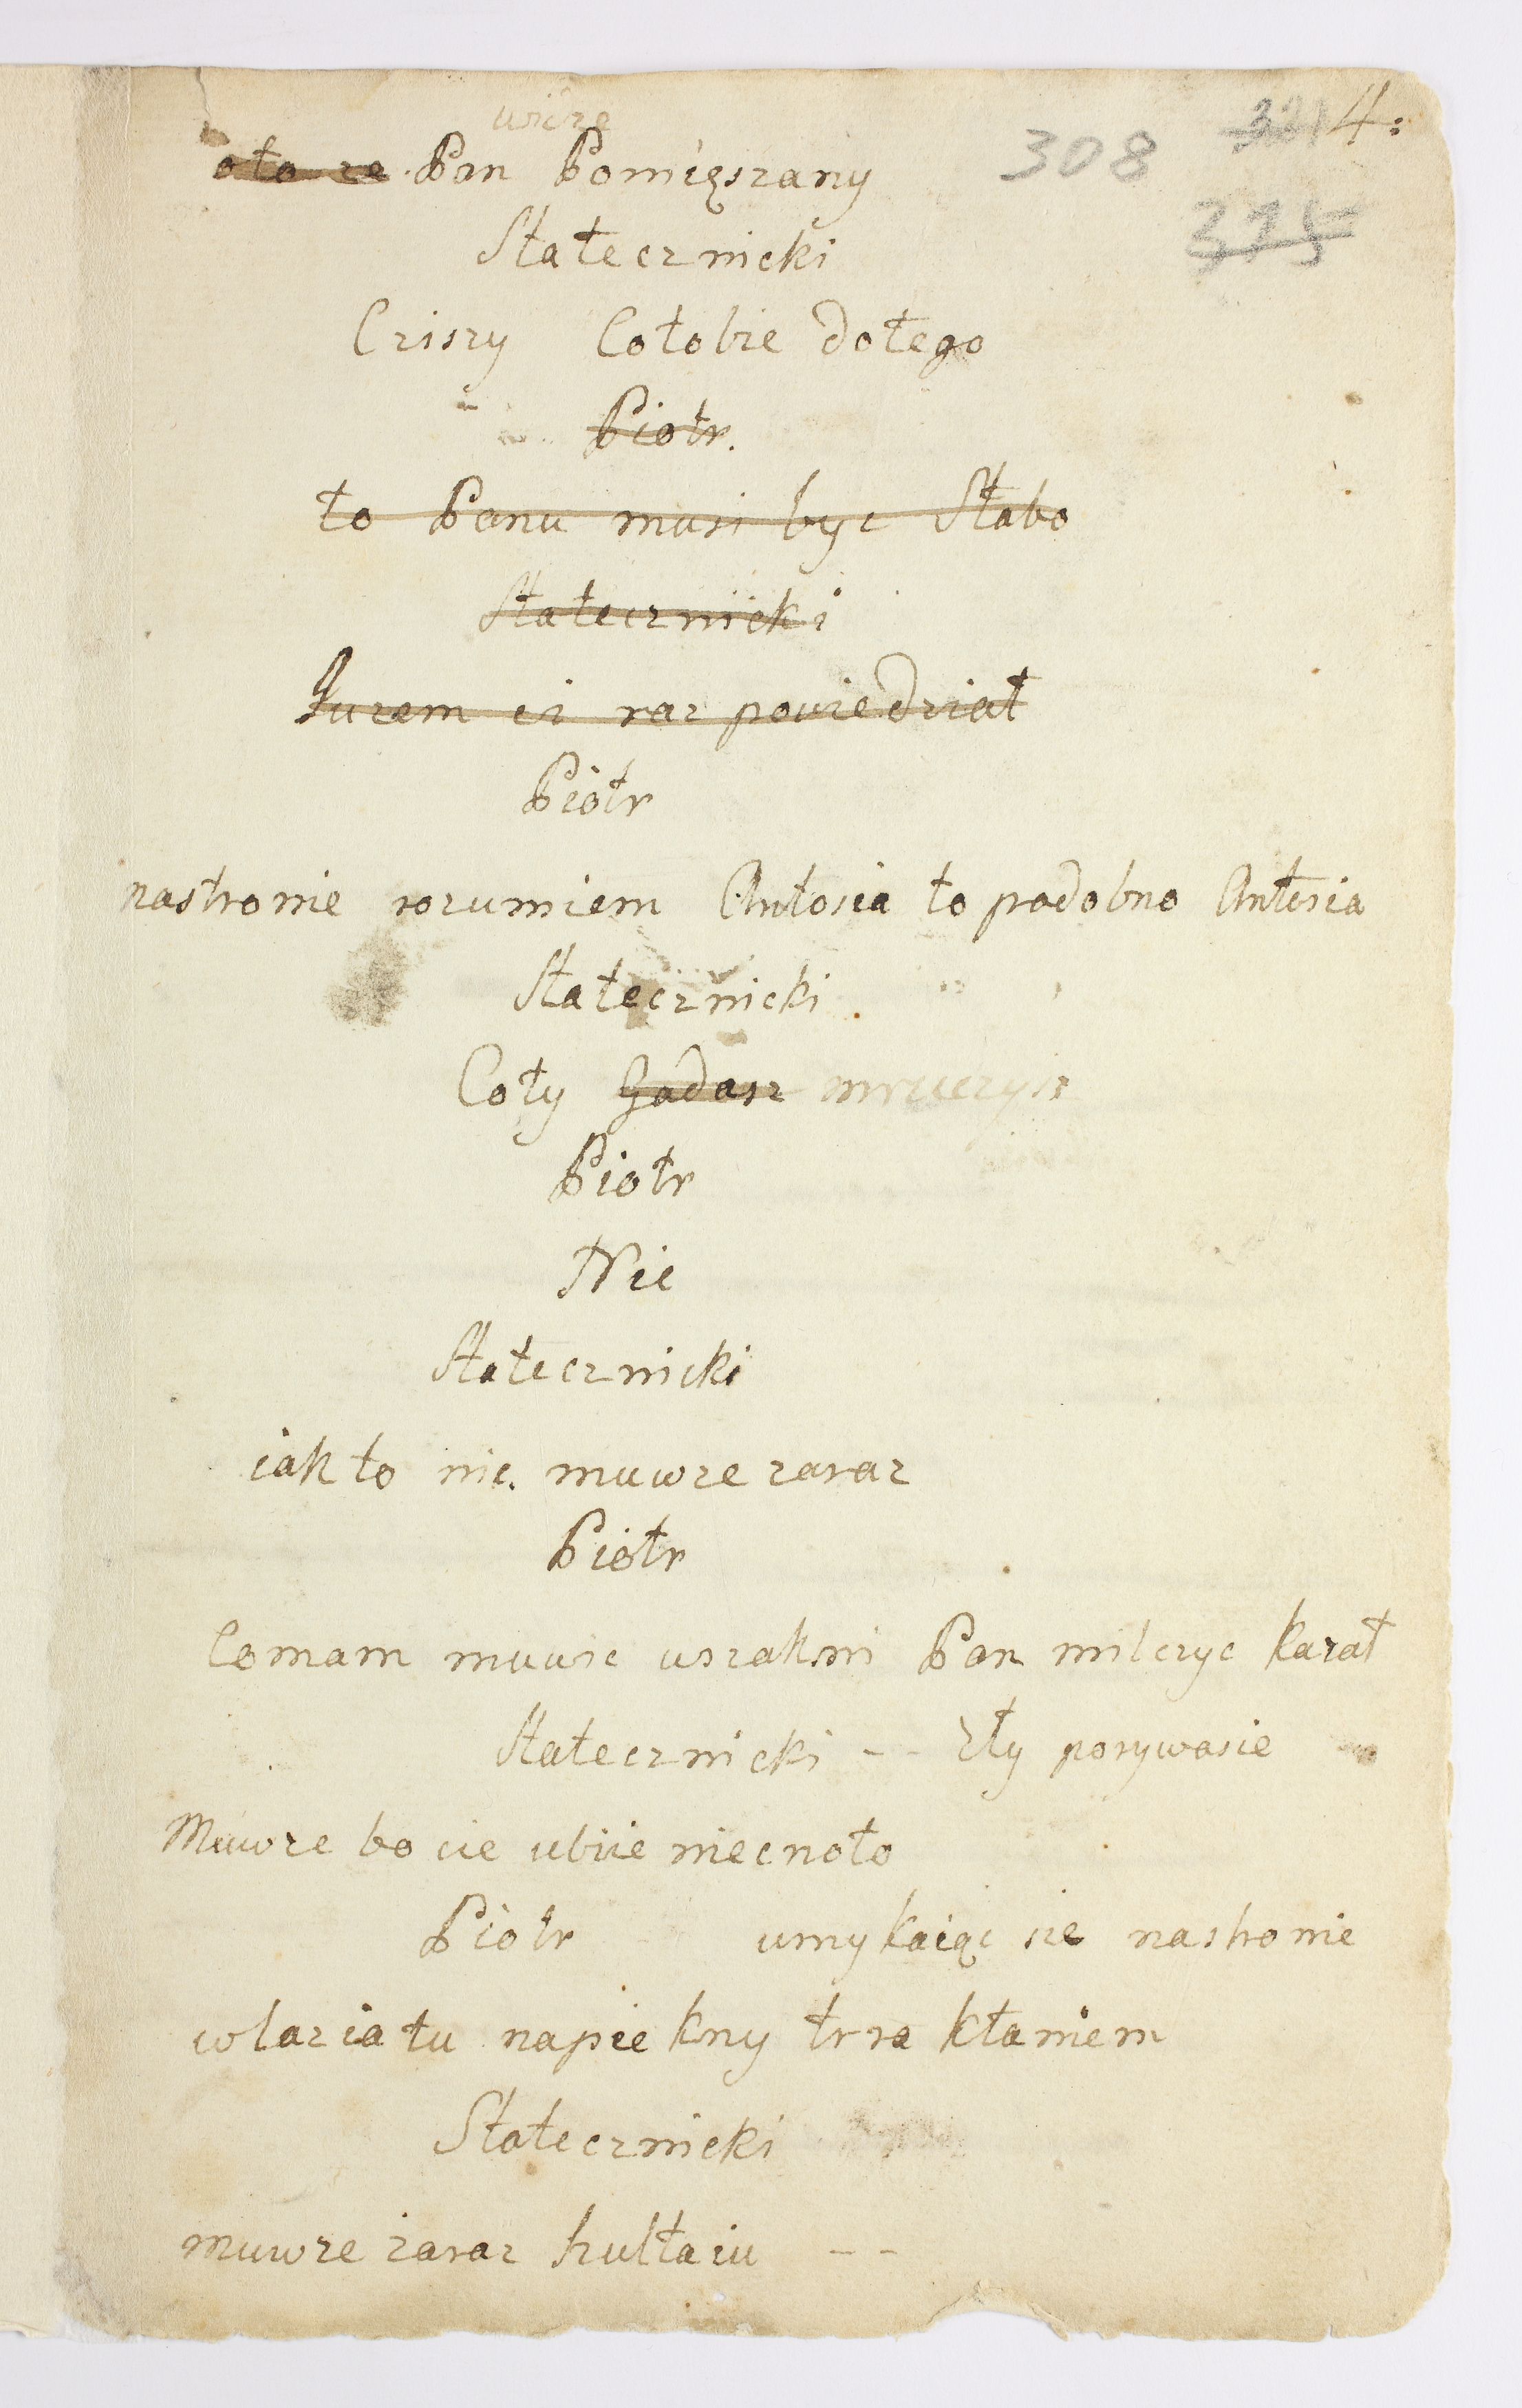 wize 321 4:
oto ze Pan Pomięszany 308
Statecznicki 375
Cziszy Cotobie dotego
Piotr.
to Panu musi byc Słabo
Statecznicki
Juzem ci raz powiedział
Piotr
nastronie rozumiem Antosia to podobno Antosia
Statecznicki
Coty Gadasz mruczysz
Piotr
Nic
Statecznicki
iakto nic. muwze zaraz
Piotr
Comam muwic wszakmi Pan milczyc kazał
Statecznicki -- zły porywasie
Muwze bo cie ubiie niecnoto
Piotr umykaiąc sie nastronie
wlazia tu napie kny trza kłamem
Statecznicki
muwze zaraz hultaiu --